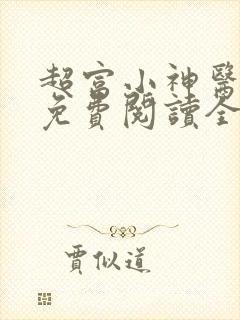 超富小神醫
免費閱讀全
賈似道